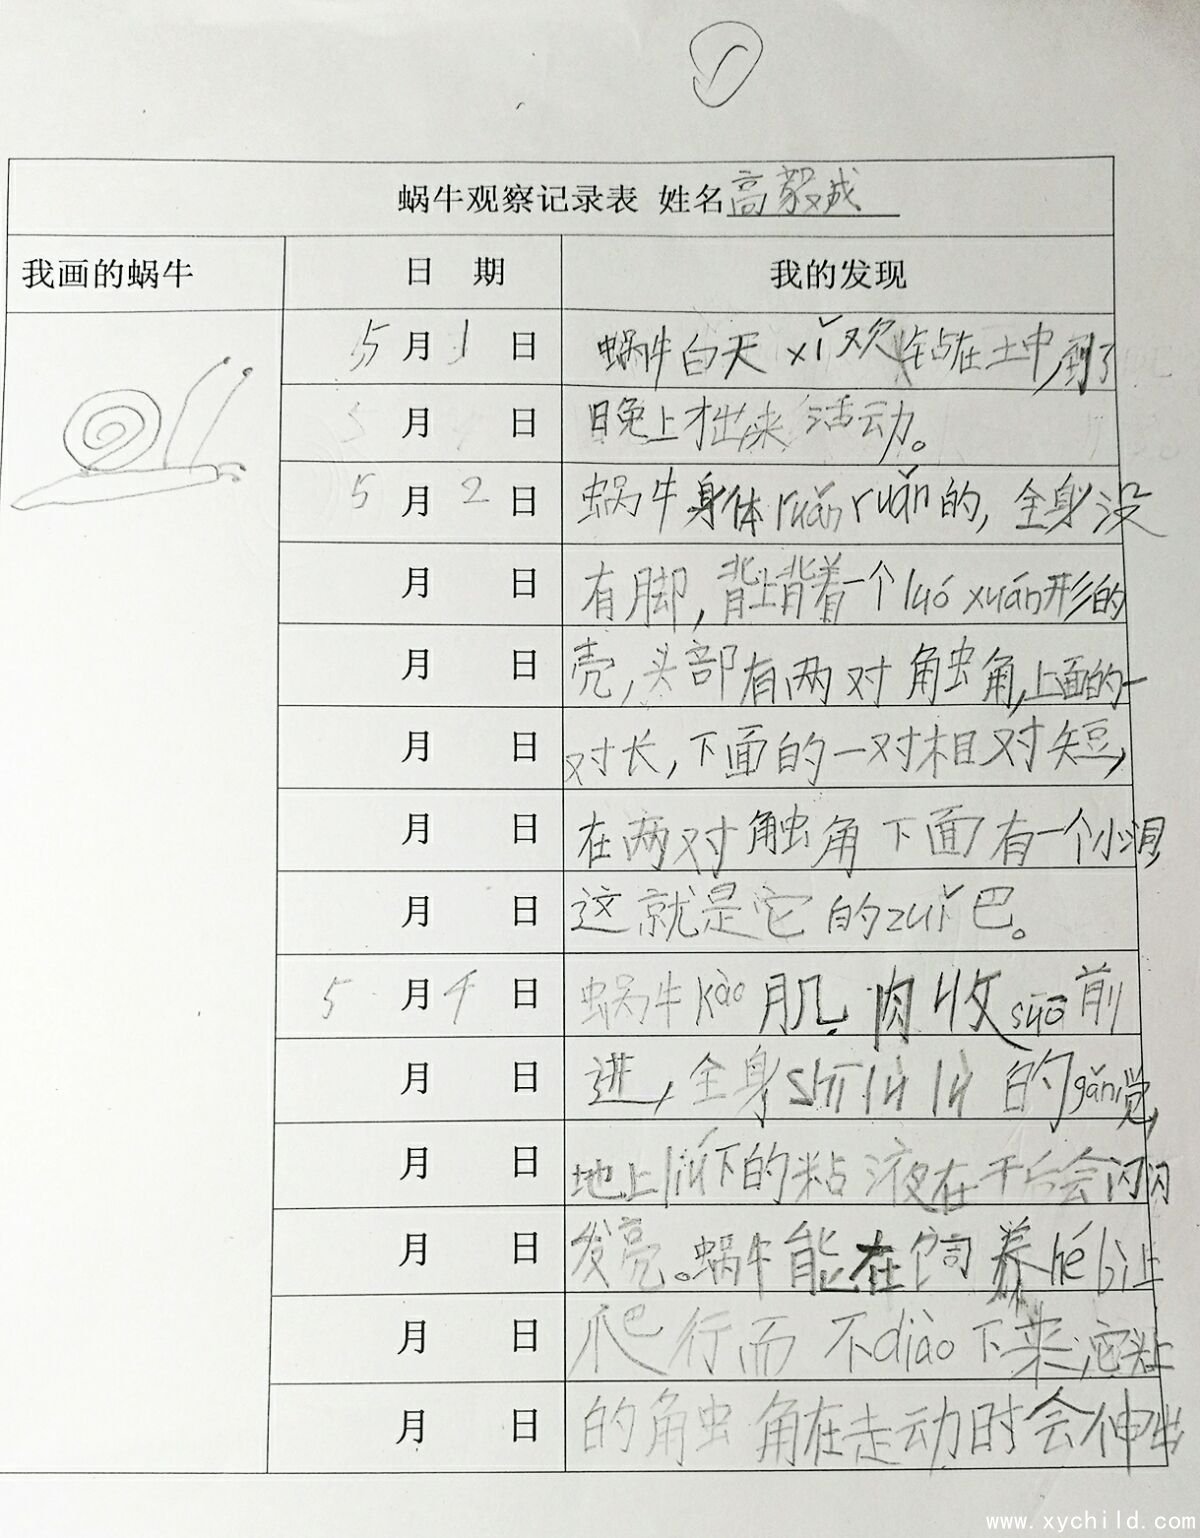 1
蜗牛观察记录表 姓名高毅成
我画的蜗牛 日 期 我的发现
5月1日 蜗牛白天xǐ欢钻在土中,到了
5月 日 晚上才出来活动。
5月2日 蜗牛身体ruǎnruǎn的,全身没
月 日 有脚,背上背着一个luó xuán形的
月 日 壳,头部有两对触角,上面的一
月 日 对长,下面的一对相对短,
月 日 在两对触角下面有一个小洞,
月 日 这就是它的zuǐ巴。
5月4日 蜗牛kào肌肉收suō前
月 日 进,全身shī lù lù的gǎn觉,
月 日 地上liú下的粘液在干后会闪闪
月 日 发亮。蜗牛能在饲养hé bì上
月 日 爬行而不diào下来,它头上
月 日 的触角在走动时会伸出
www.xychild.com